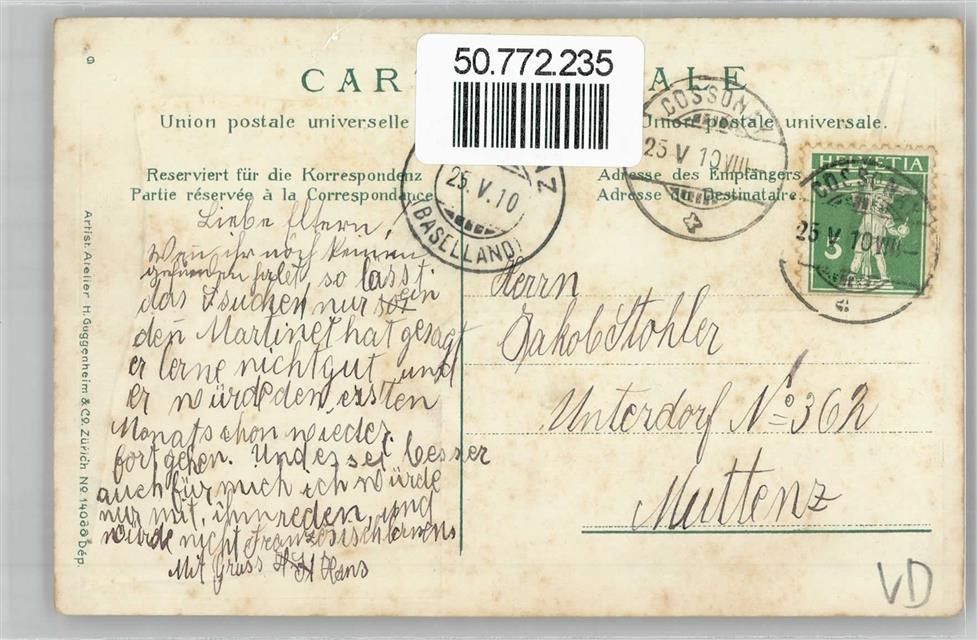 9
50.772.235
CAR ALE
Union postale universelle
Union postale universale.
Reserviert für die Korrespondenz
Partie réservée à la Correspondance
Adresse des Empfängers
Adresse Destinataire.
COSSONAY
25 V 10 VIII
NZ
25. V. 10
(BASELLAND)
HELVETIA
5
COSSONAY
25 V 10 VIII
Liebe Eltern,
Wen ihr noch keinen
gefunden habet, so lasst
das Tsuchen nur sein
den Martinet hat gesagt
er lerne nicht gut, und
er würde den ersten
Monat schon wieder
fort gehen. Und es sei besser
auch für mich ich würde
nur mit ihm reden, und
würde nicht Französisch lernens
Mit Gruss Hans
Herrn
Jakob Stohler
Unterdorf No 362
Muttenz
Artist. Atelier H. Guggenheim & Co. Zürich No 14068 Dép.
VD